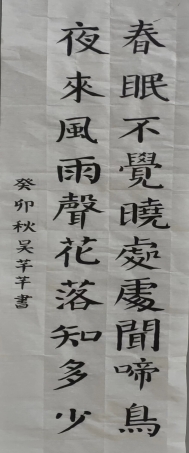 春眠不覺曉處處聞啼鳥
夜來風雨聲花落知多少
癸卯秋吴芊芊書